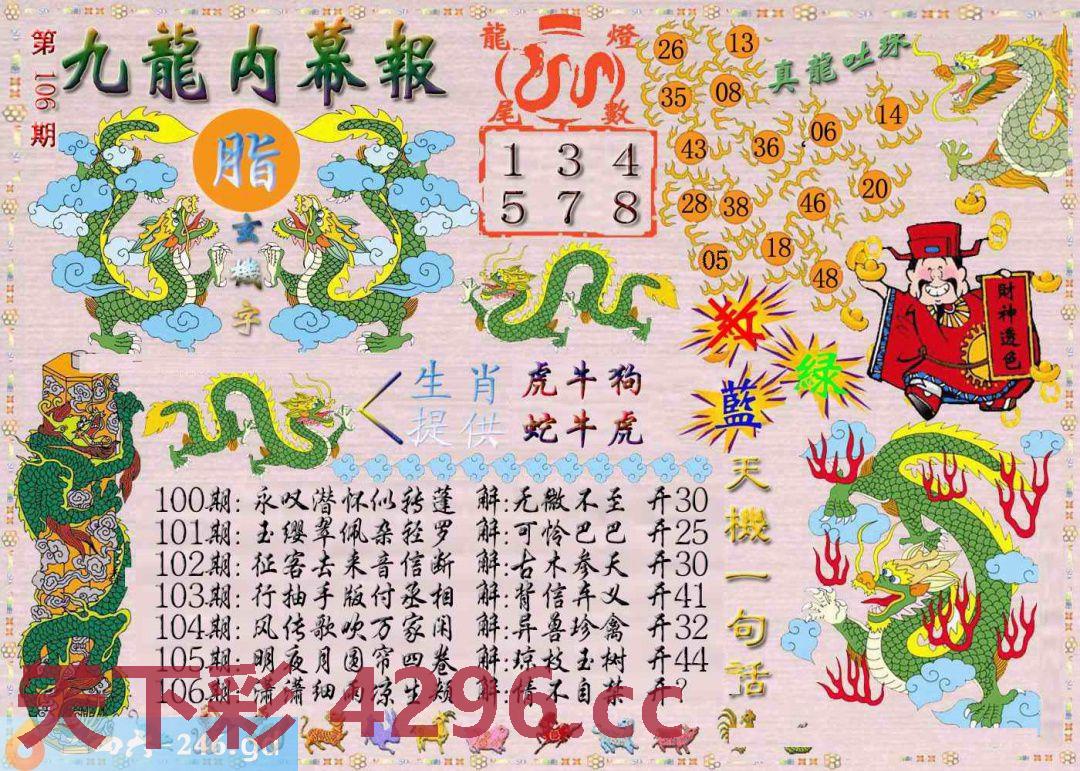 第106期
九龍内幕報
脂
玄機字
龍燈
尾數
1 3 4
5 7 8
真龍吐珠
26 13
35 08
43 36 06 14
28 38 46 20
05 18 48
紅
綠
藍
財神透色
生肖 虎牛狗
提供 蛇牛虎
天機一句話
100期: 永叹潜怀似转蓬 解:无微不至 开30
101期: 玉缨翠佩杂轻罗 解:可怜巴巴 开25
102期: 征客去来音信断 解:古木参天 开30
103期: 行抽手版付丞相 解:背信弃义 开41
104期: 风传歌吹万家闲 解:异兽珍禽 开32
105期: 明夜月圆帘四卷 解:琼枝玉树 开44
106期: 潇潇细雨凉生颊 解:情不自禁 开?
天下彩 4296.cc
=246.gd